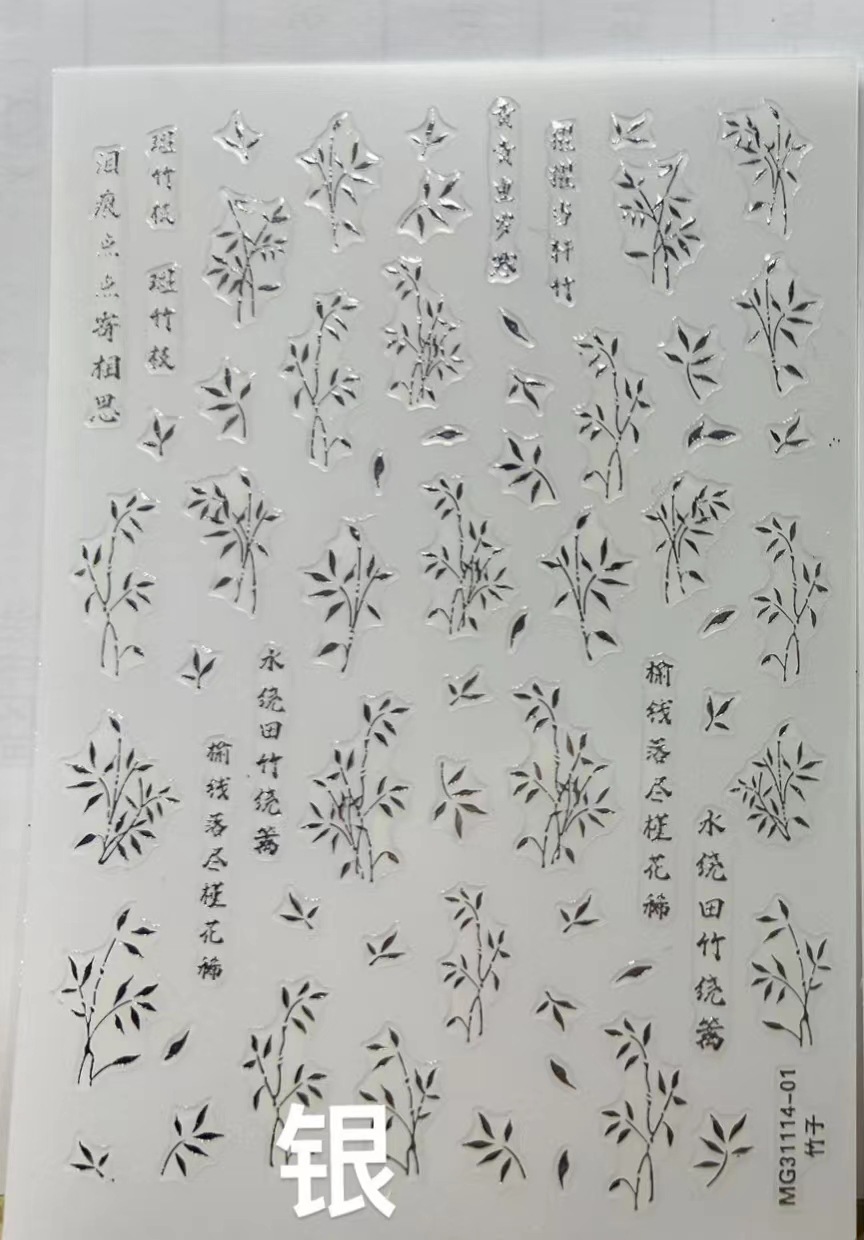 擢擢当轩竹
青青重岁寒
斑竹枝 斑竹枝
泪痕点点寄相思
水绕田竹绕篱
榆线落尽槿花稀
水绕田竹绕篱
榆线落尽槿花稀
MG31114-01
竹子
银